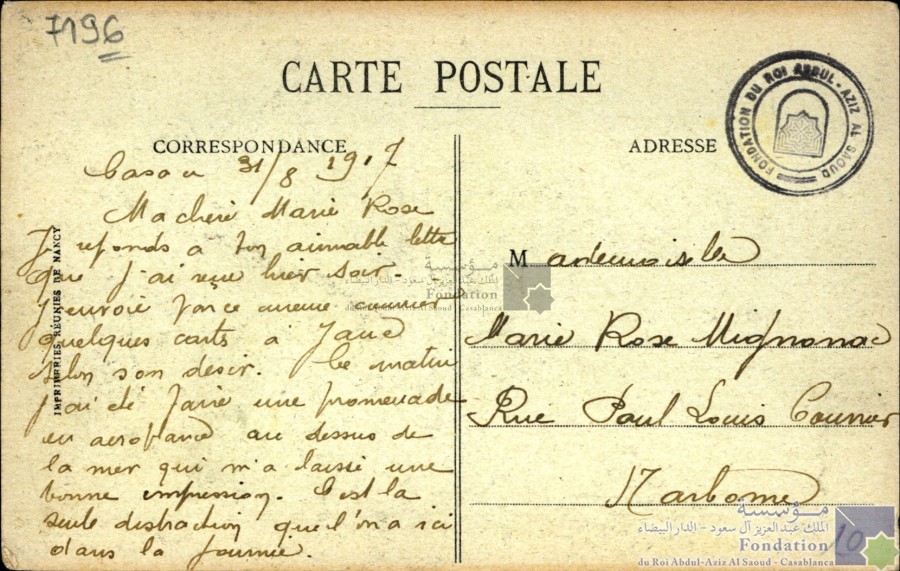 7196
CARTE POSTALE
FONDATION DU ROI ABDUL-AZIZ AL SAOUD
CORRESPONDANCE
ADRESSE
Casa 31/8 1917
Ma cheré Marie Rose
Je reponds a ton aimable lette
que j'ai reçue hier soir.
J'envoie par ce meme courrier
quelques carts à
selon son desir. Ce matin
j'ai été faire une promenade
en aeroplane au dessus de
la mer qui m'a laissé une
bonne impression. C'est la
seule distraction que l'on a ici
dans la journée.
IMPRIMERIES RÉUNIES DE NANCY
Mademoiselle
Marie Rose Mignonac
Rue Paul Louis Courrier
Narbonne
مؤسسة
الملك عبد العزيز آل سعود - الدار البيضاء
Fondation
du Roi Abdul-Aziz Al Saoud - Casablanca
10
مؤسسة
الملك عبد العزيز آل سعود - الدار البيضاء
Fondation
du Roi Abdul-Aziz Al Saoud - Casablanca